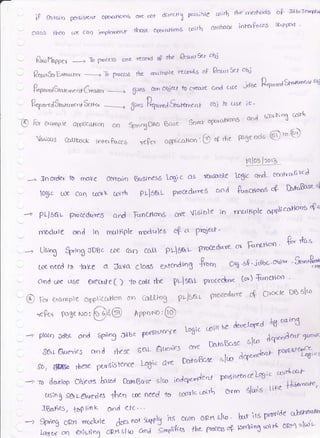 if certain persistence operations are not directly possible with the methods of JdbcTemplate
class then we can implement those operations with callback interfaces support.
RowMapper → To process one record of the ResultSet obj
ResultSetExtractor → To process the multiple records of ResultSet obj
PreparedStatementCreator → gives con object to create and use jdbc PreparedStatement obj
PreparedStatementSetter → gives PreparedStatement obj to use it.
For example application on Spring DAO Basic Select operations and working with
various callback interfaces refer application: of the page nos:
19/05/2013
→ In order to make certain Business Logic as reusable logic and centralized
logic we can work with PL/SQL procedures and functions of DataBase s/w
→ PL/SQL procedures and Functions are visible in multiple applications of a
module and in multiple modules of a project.
→ Using Spring JDBC we can call PL/SQL procedure or Function. for this
we need to take a Java class extending from
and we use execute( ) to call the PL/SQL procedure (or) Function.
For example application on calling PL/SQL procedure of Oracle DB s/w
refer Page No: App no:
→ plain JDBC and Spring JDBC persistence logic will be developed by using
SQL Queries and these SQL Queries are DataBase s/w dependent queries
so, these persistence Logic are DataBase s/w dependent persistence Logics
→ To develop Objects based DataBase s/w independent persistence Logic without
using SQL Queries then we need to work with orm s/w's like Hibernate,
JBoties, toplink and etc...
→ Spring ORM module does not supply its own ORM s/w. but its provide abstraction
layer on existing ORM s/w and simplifies the process of working with ORM s/w's.